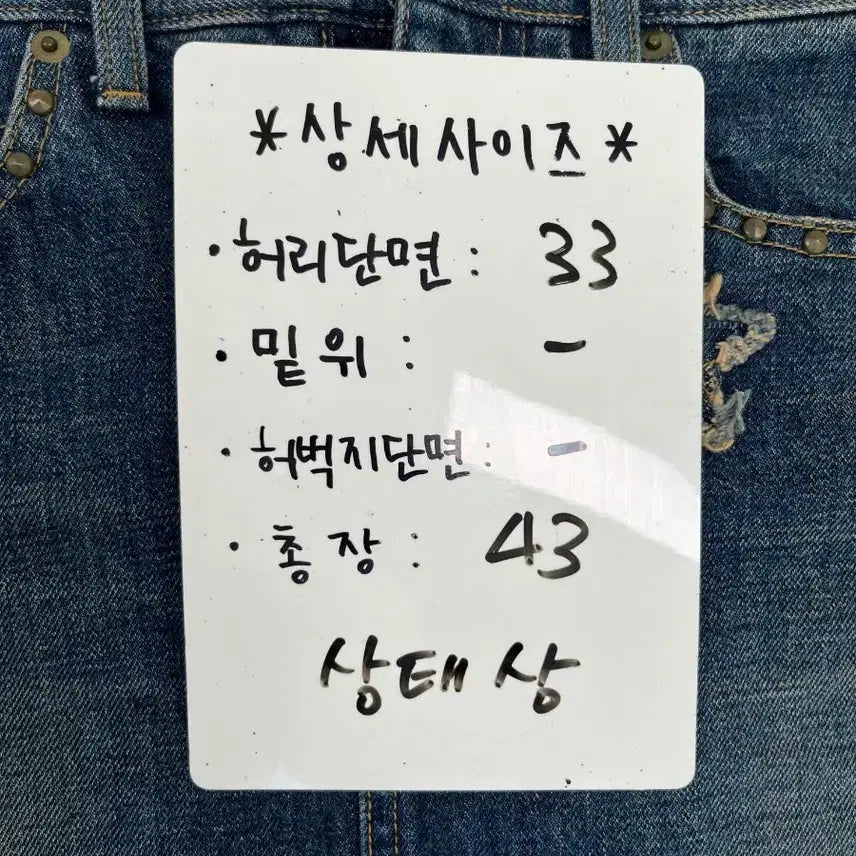 *상세사이즈*
·허리단면 : 33
·밑위 : -
·허벅지단면 : -
·총장 : 43
상태 상